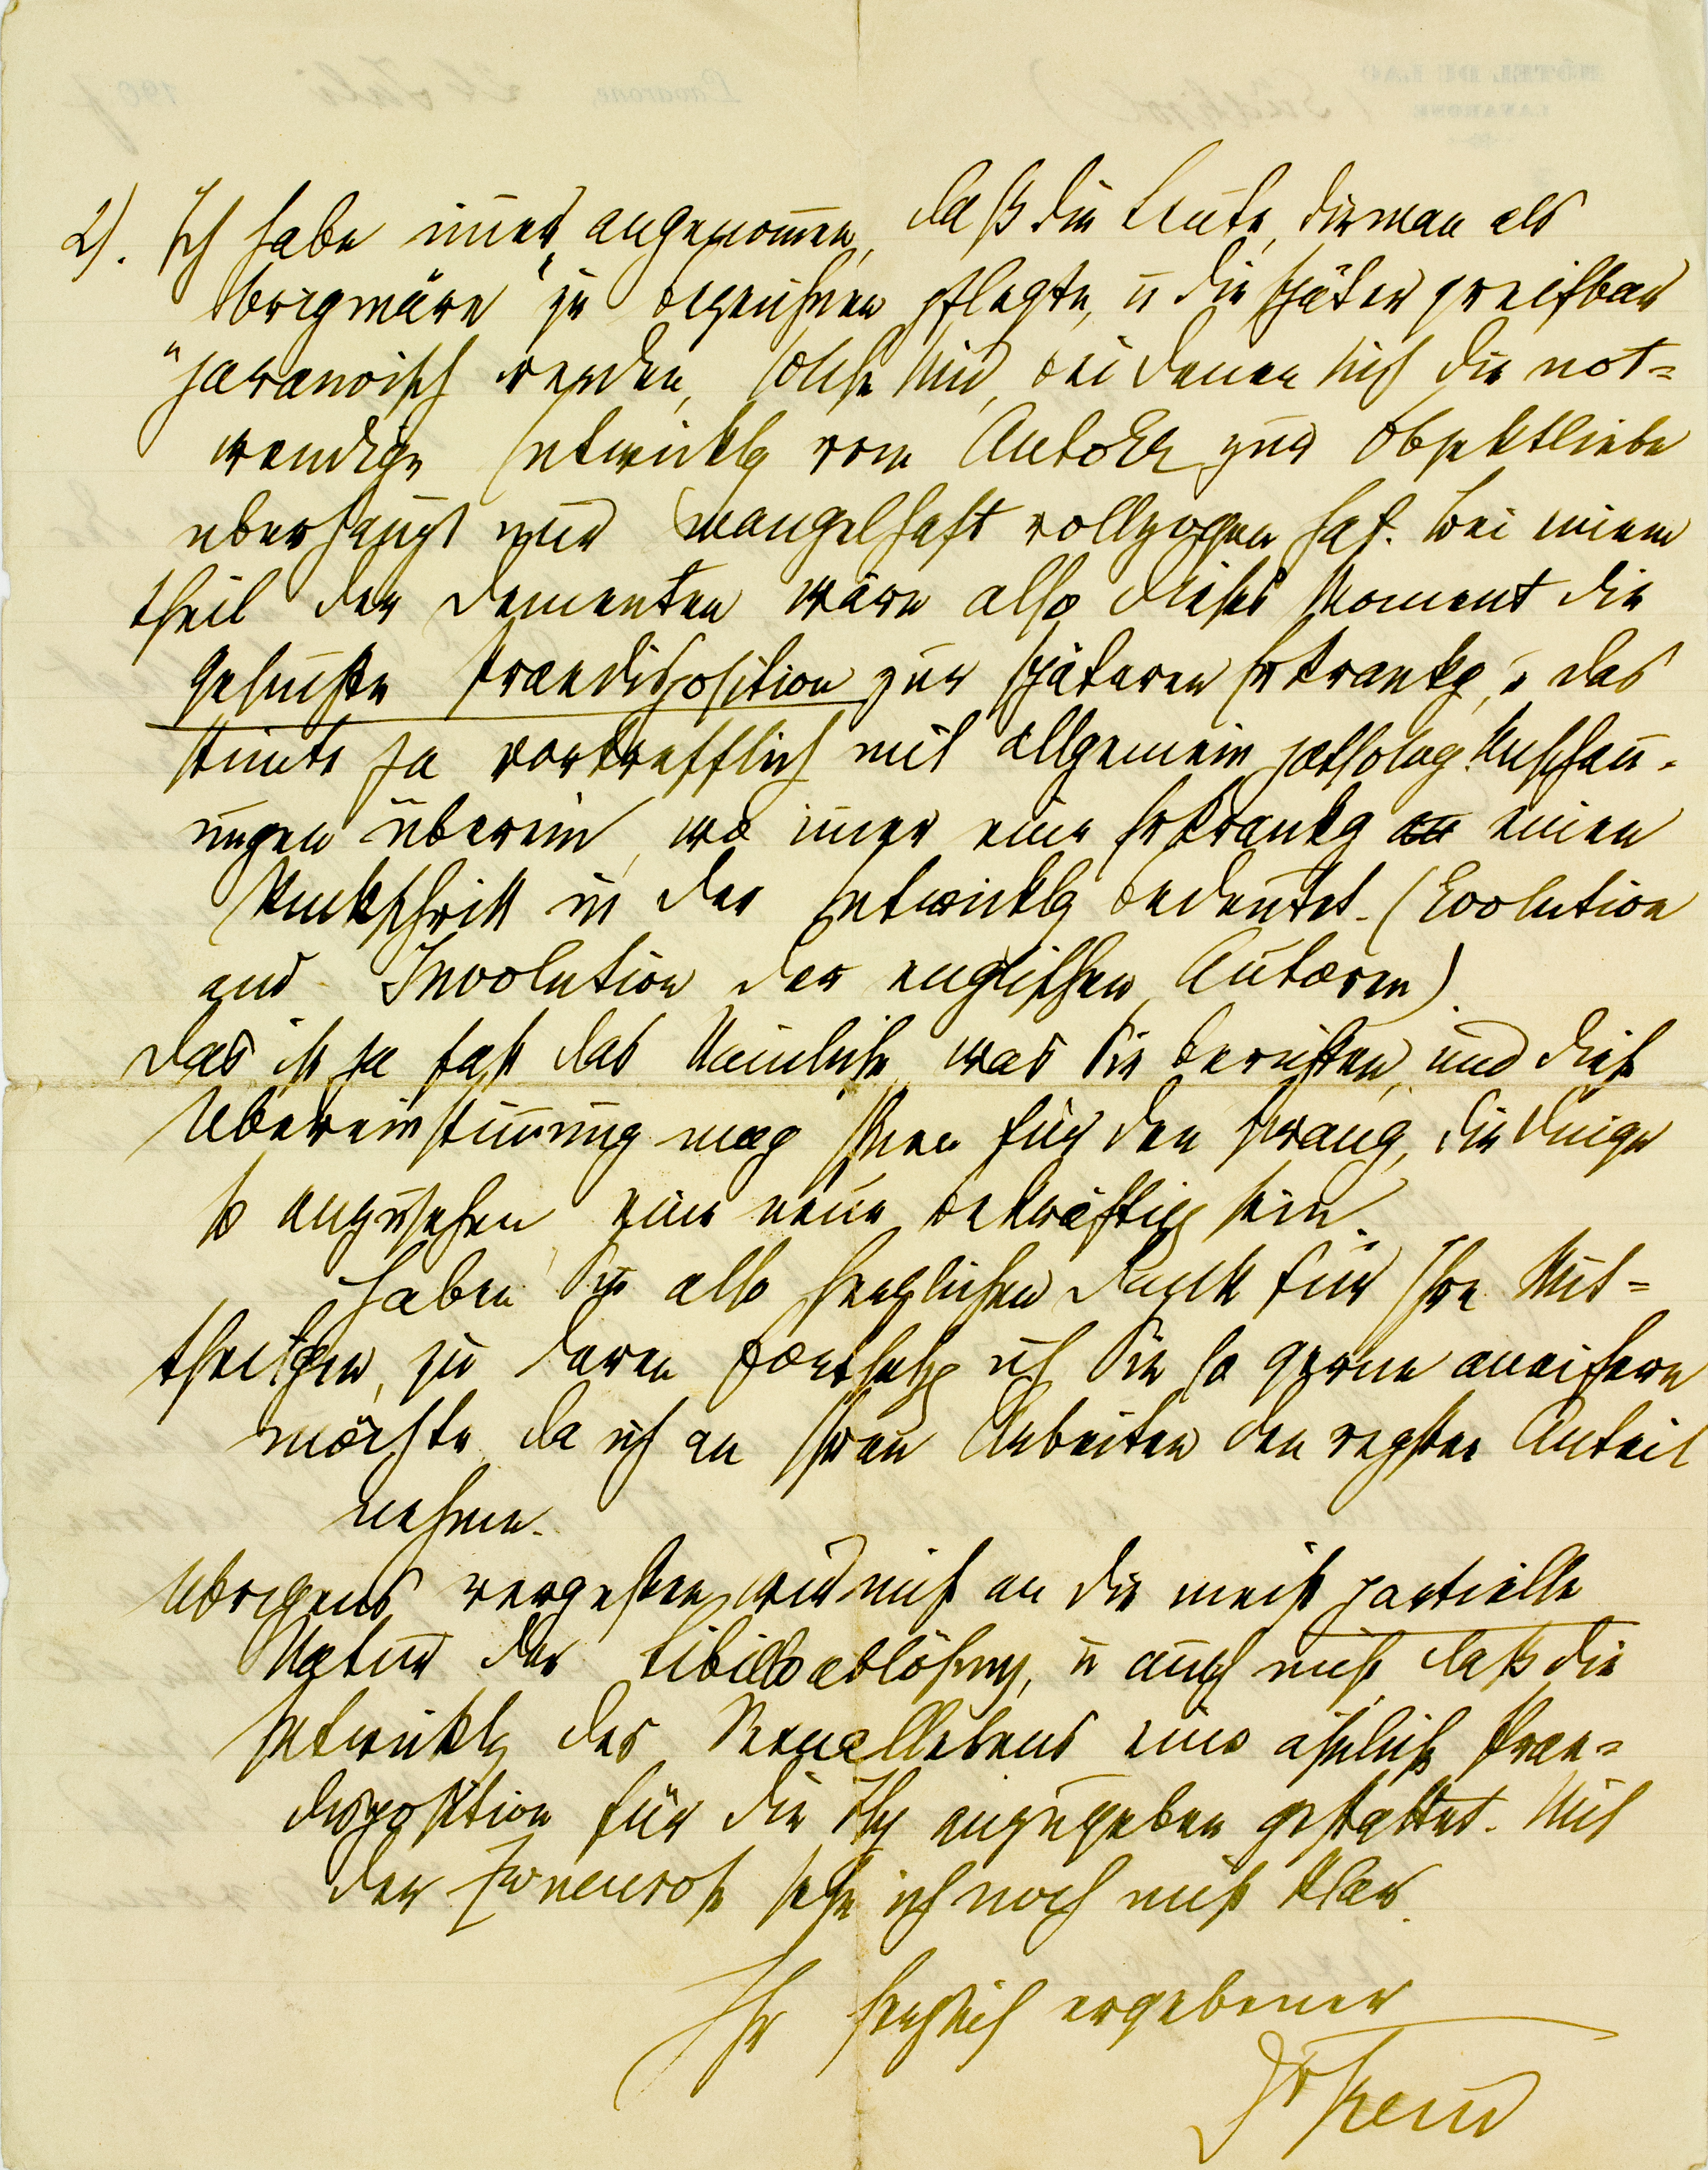 2). Ich habe im̅er angenom̅en, daß die Leute, die man als
„originäre“ zu bezeichnen pflegte, u die später greifbar
paranoisch werden, solche sind, bei denen sich die not=
wendige Entwicklg vom Autoer. zur Objektliebe
überhaupt nur mangelhaft vollzogen hat. Bei einem
Theil der Dementen wäre also dieses Moment die
gesuchte Praedisposition zur späteren Erkrankg, u das
stimte ja vortrefflich mit allgemein patholog. Anschau-
ungen überein, wo im̅er eine Erkrankg einen
Rückschritt in der Entwicklg bedeutet. (Evolution
and Involution der englischen Autoren)
Das ist ja fast das Nämliche, was Sie berichten, und diese
Übereinstim̅ung mag Ihnen für den Zwang, die Dinge
so anzusehen eine neue Bekräftigg sein.
Haben Sie also herzlichen Dank für Ihre Mit=
theilgen, zu deren Fortsetzg ich Sie so gerne aneifern
möchte, da ich an Ihren Arbeiten den regsten Anteil
nehme.
Übrigens vergessen wir nicht an die meist partielle
Natur der Libidoablösung, u auch nicht daß die
Entwicklg des Sexuallebens eine ähnliche Prae=
disposition für die Hy anzugeben gestattet. Mit
der Zwneurose sehe ich noch nicht klar.
Ihr herzlich ergebener
Dr Freud